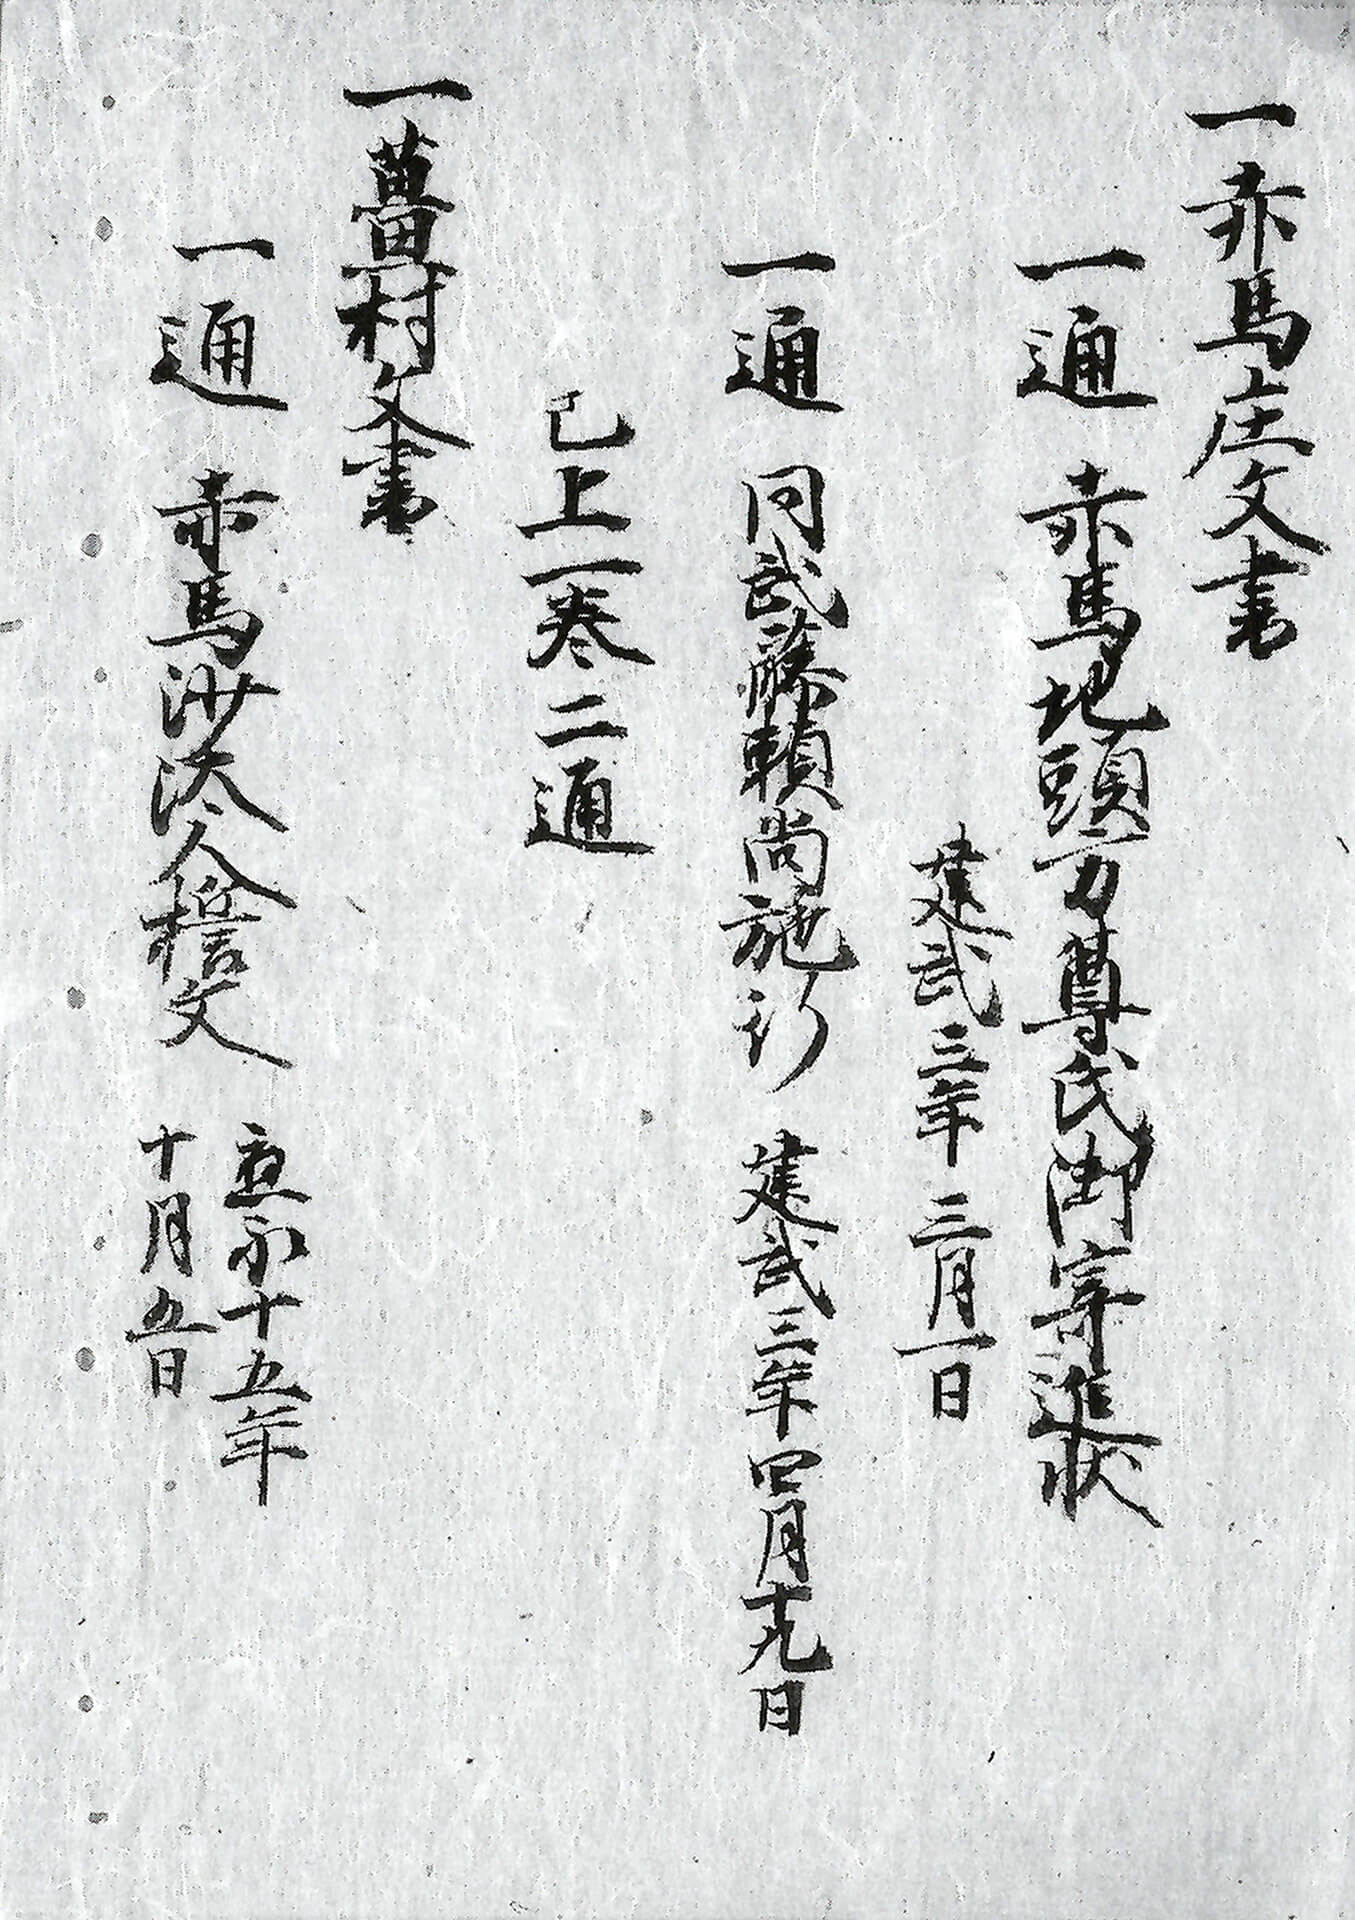 一赤馬庄文書
一通 赤馬地頭方尊氏御寄進状
建武三年三月一日
一通 同武藤頼尚施行 建武三年四月十九日
已上一巻二通
一薑村文書
一通 赤馬沙汰人證文 應永十五年
十月五日